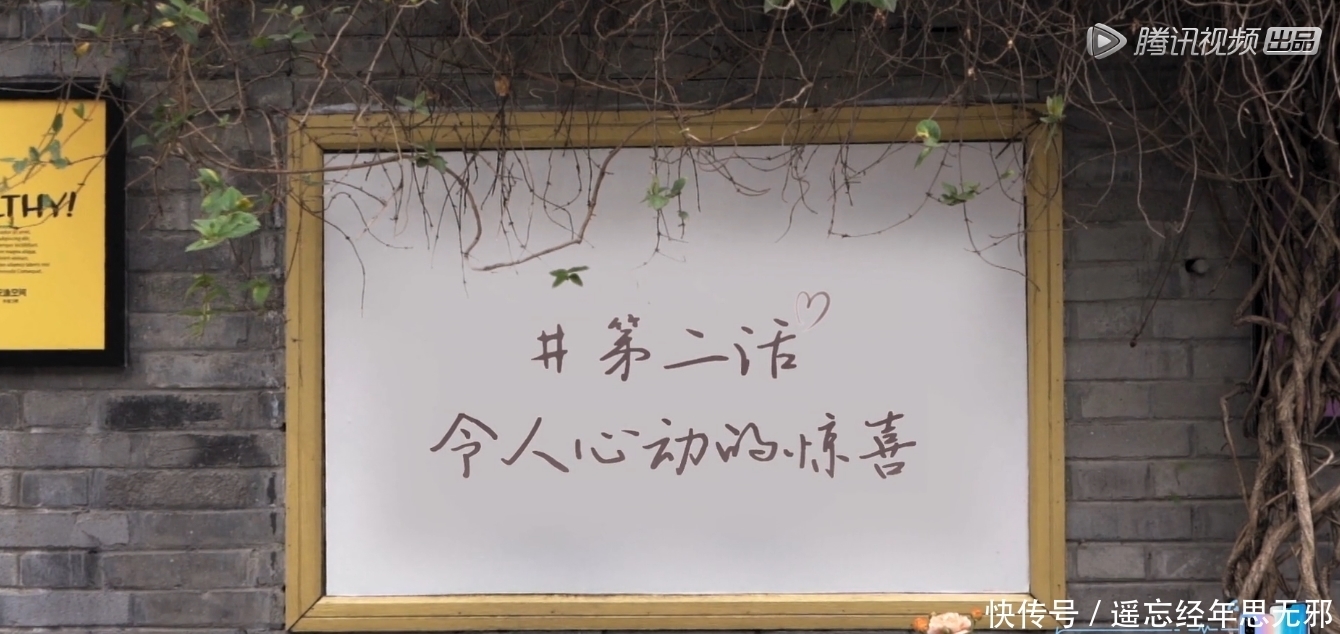 腾讯视频 出品
LTHY!
#第二话
令人心动的惊喜
快传号 / 遥忘经年思无邪